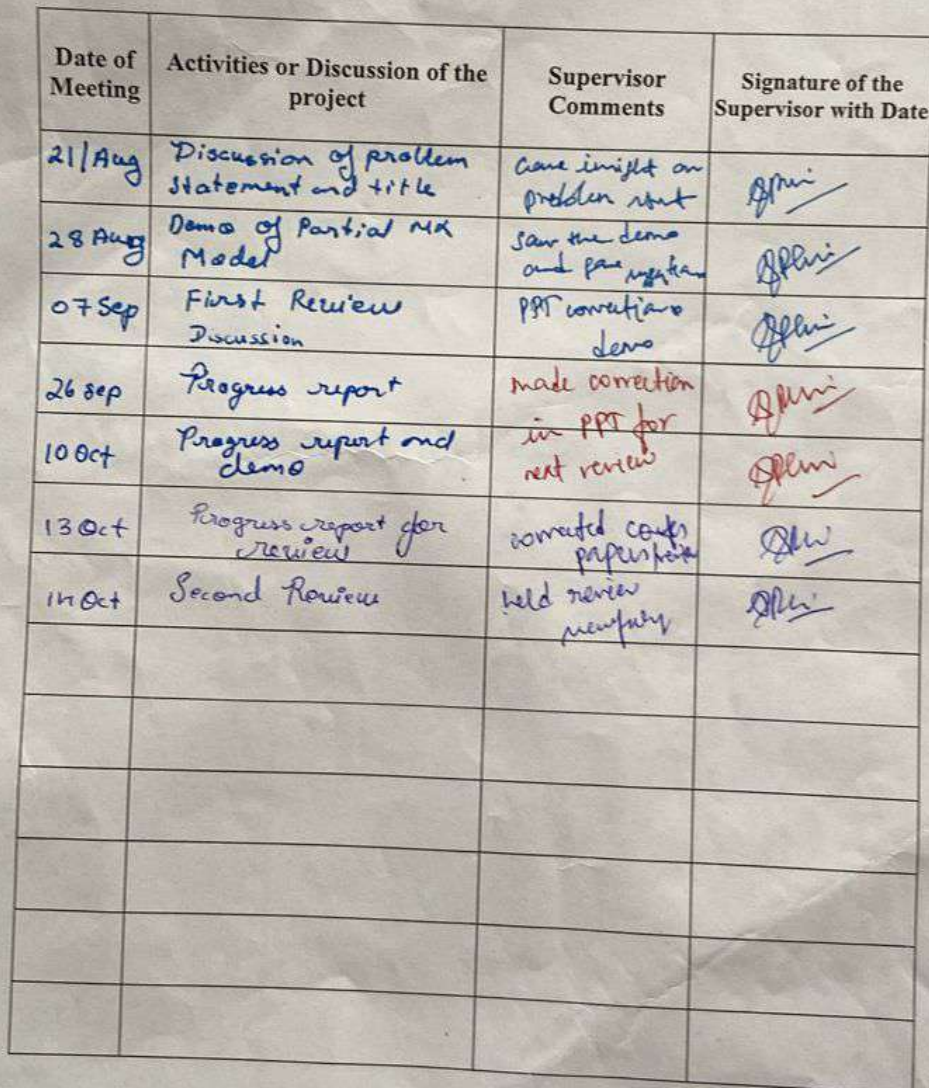 Date of
Meeting
Activities or Discussion of the
project
Supervisor
Comments
Signature of the
Supervisor with Date
21/Aug
Discussion of problem
statement and title
Gave insight on
problem stmt
28 Aug
Demo of Partial
Model
saw the demo
and gave
07 Sep
First Review
Discussion
PPT corrections
demo
26 sep
Progress report
made correction
in PPT for
next review
10 Oct
Progress report and
demo
13 Oct
Progress report for
review
corrected
14 Oct
Second Review
held review